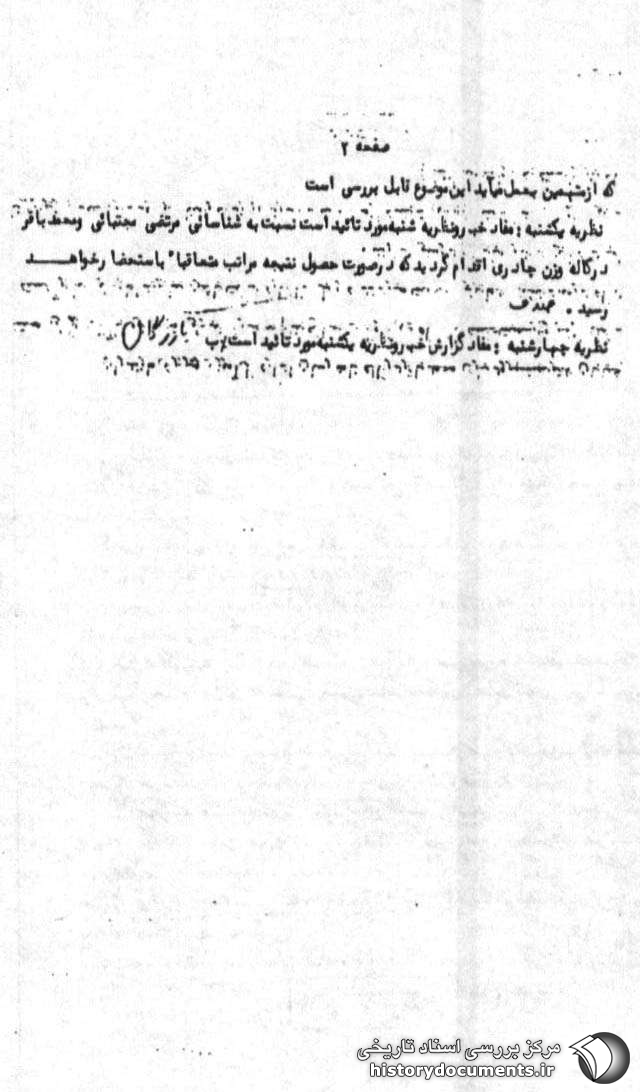 صفحه ۲
که از شیمیم بعمل میاید این موضوع قابل بررسی است
نظریه یکشنبه : مفاد خبر و نظریه شنبه مورد تائید است نسبت به شناسائی مرتضی مجتبائی و محمد باقر
اقدام گردید که در صورت حصول نتیجه مراتب متعاقباً باستحضار خواهد
رسید .
نظریه چهارشنبه : مفاد گزارش خبر و نظریه یکشنبه مورد تائید است
مرکز بررسی اسناد تاریخی
historydocuments.ir